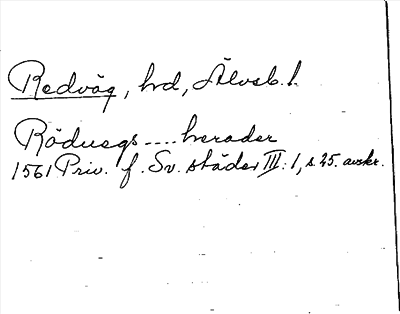 Redväg, hd, Älvsb. l.
Röduegs .... herader
1561 Priv. f. Sv. städer III: 1, s. 25. avskr.